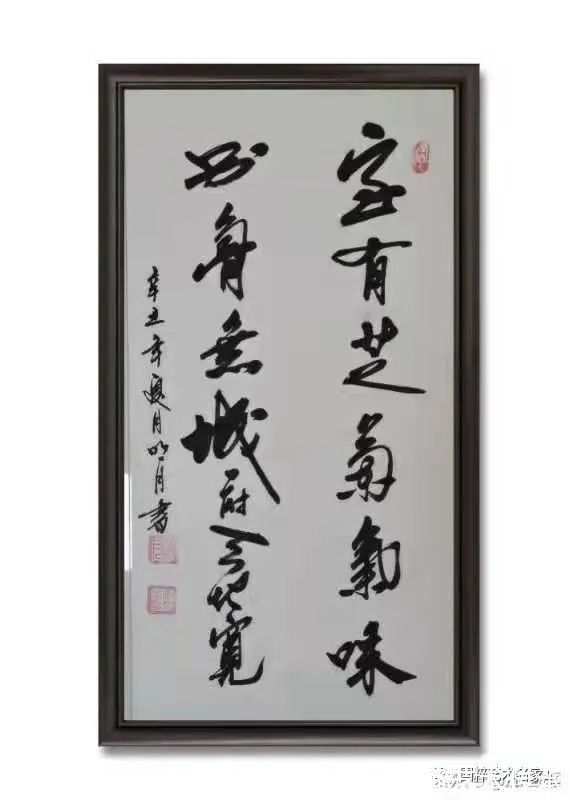 室有芝蘭氣味
胷無城府天地寬
辛丑年夏月明月書